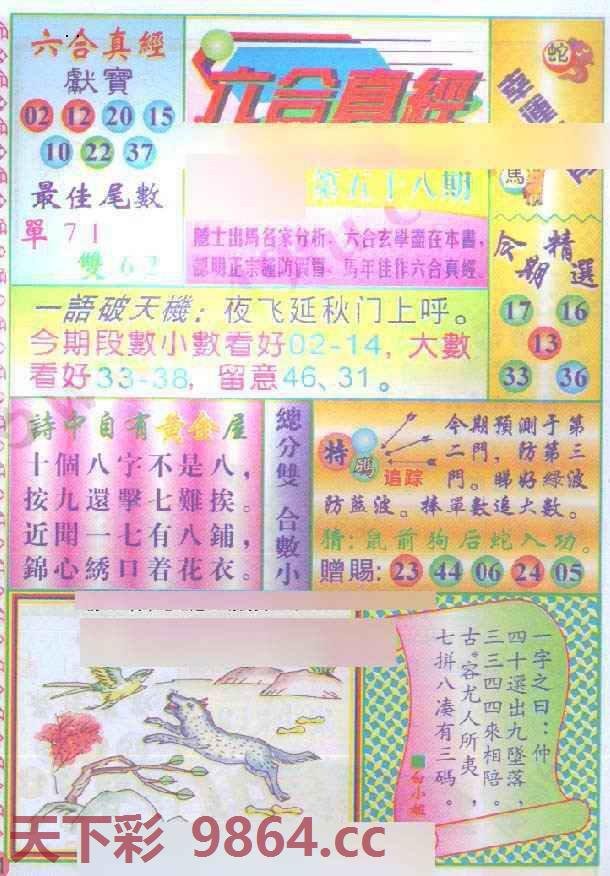 六合真經
獻寶
02 12 20 15
10 22 37
最佳尾數
單 71
雙 62
六合真經
第五十八期
隱士出馬名家分析、六合玄學盡在本書，
認明正宗謹防假冒、馬年佳作六合真經。
蛇
馬
今期精選
17 16
13
33 36
一語破天機：夜飞延秋门上呼。
今期段數小數看好02-14, 大數
看好33-38, 留意46、31。
詩中自有黃金屋
十個八字不是八，
按九還擊七難挨。
近聞一七有八鋪，
錦心綉口着花衣。
總分雙 合數小
特碼
追踪
今期預測于第
二門，防第三
門。睇好綠波
防藍波。捧單數追大數。
猜：鼠前狗后蛇入功。
贈賜：23 44 06 24 05
一字之曰：仲
四十選出九墜落，
三三四四來相陪。
古。客尤人所夷，
七拼八凑有三碼。
白小姐
天下彩 9864.cc